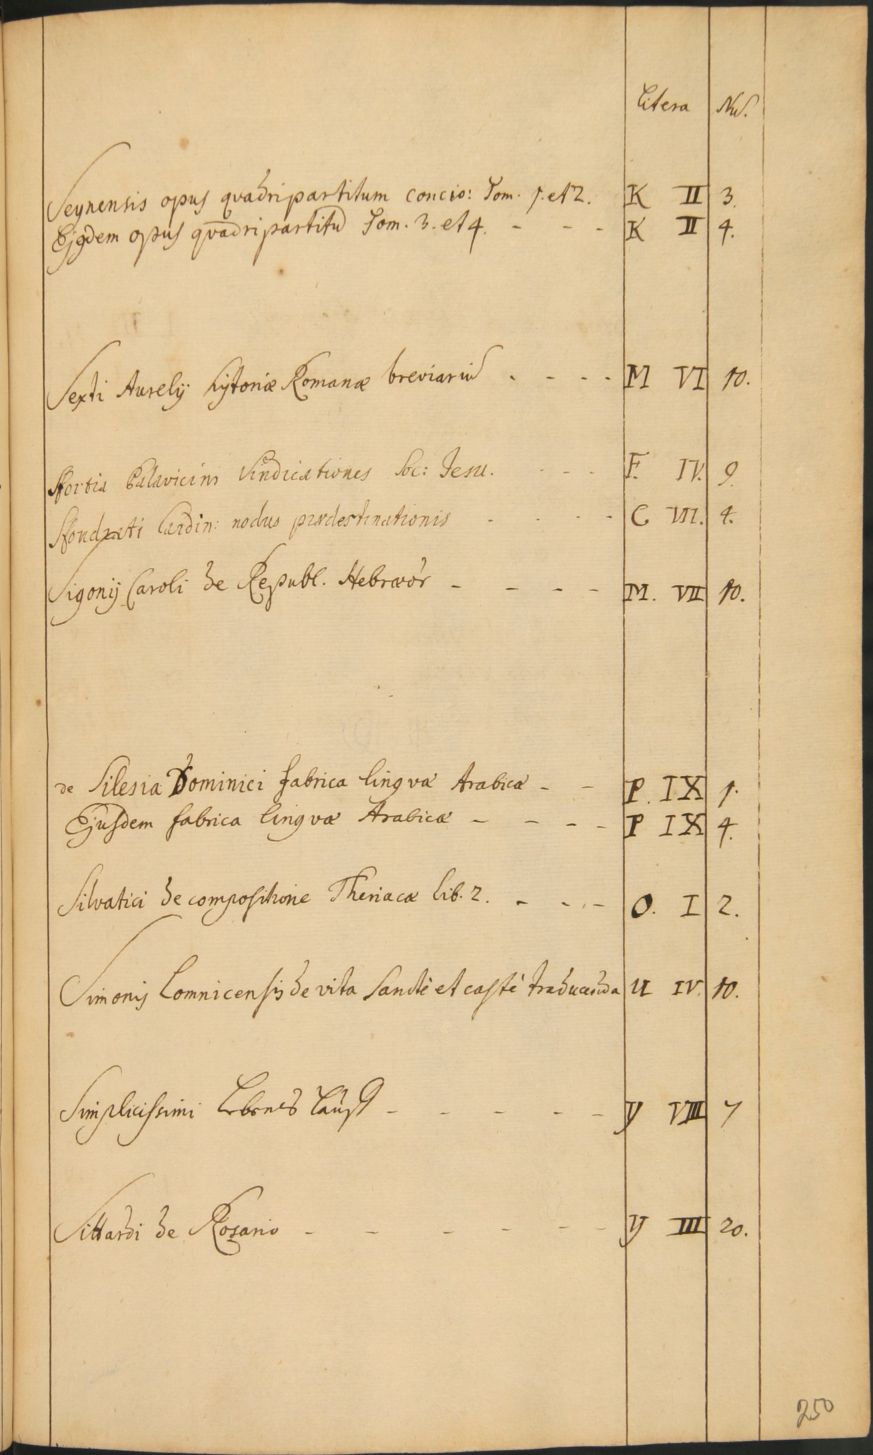 Litera Nu.
Seynensis opus quadripartitum concio: Tom. 1. et 2. K II 3.
Ejusdem opus quadripartitū Tom. 3. et 4. - - - K II 4.
Sexti Aurelij hystoriæ Romanæ breviariū - - - - M VI 10.
Sfortia Palavicini Vindicationes Soc: Jesu. - - - F. IV. 9.
Sfondrati Cardin: nodus prædestinationis - - - - C VII. 4.
Sigonij Caroli de Republ. Hebræor̄ - - - - M. VII 10.
de Silesia Dominici fabrica lingvæ Arabicæ - - P. IX 1.
Ejusdem fabrica lingvæ Arabicæ - - - - P IX 4.
Silvatici de compositione Theriacæ lib. 2. - - - O. I 2.
Simonis Lomnicensis de vita sanctè et castè traducenda U IV. 10.
Simplicissimi Lebens Lauff - - - - - Y VIII 7
Sittardi de Rosario - - - - - - Y III 20.
250